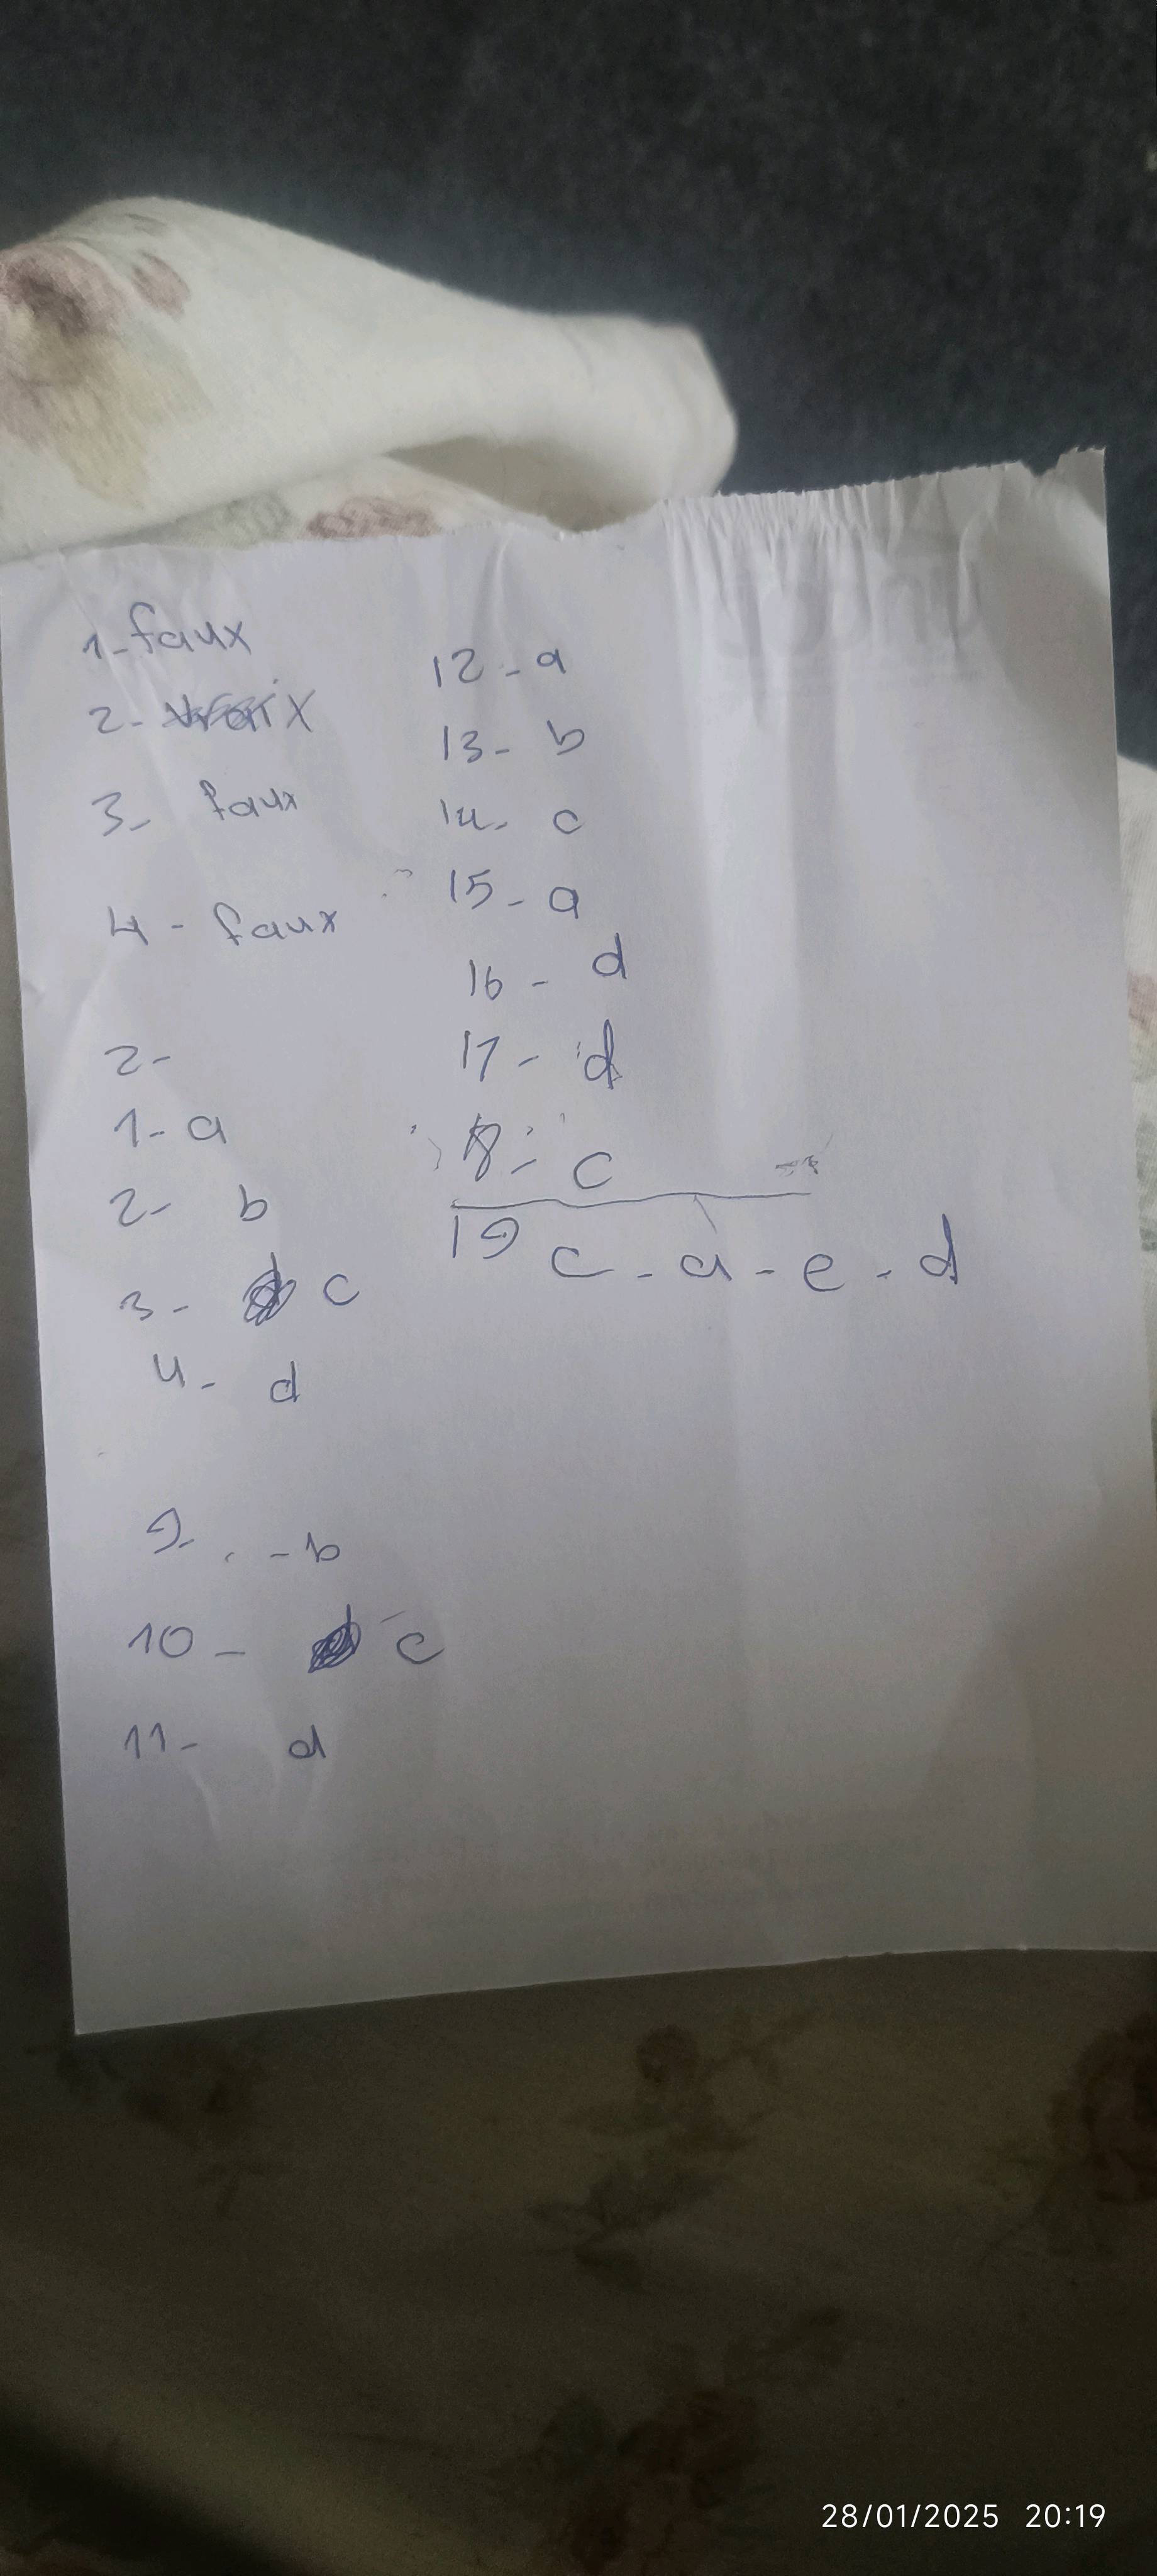 1- faux
2-
3- faux
4 - faux
2-
1- a
2- b
3- c
4- d
9- - b
10 - c
11- d
12 - a
13 - b
14 - c
15 - a
16 - d
17 - d
8 - c
19 c - a - e - d
28/01/2025 20:19